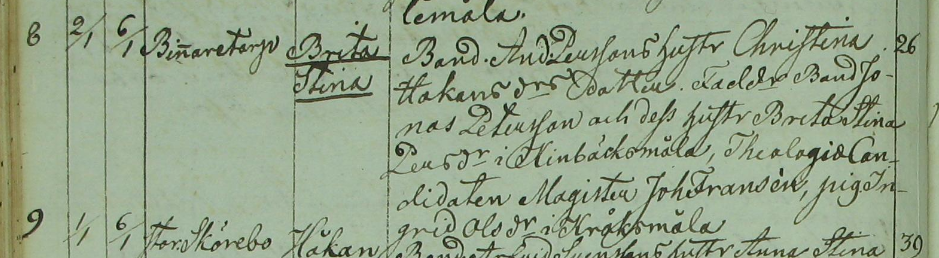 lemåla.
8 2/1 6/1 Binnaretorp Brita Band. And Perssons hustr Christina 26
Stina Håkans drs Dotter. Faddr Band Jo-
nas Petersson och dess hustr Brita Stina
Pers dr i Kinbäcksmåla, Theologiæ Can-
didaten Magister Joh Fransén, pig In-
grid Ols dr i Kråksmåla
9 1/1 6/1 Stor. Skörebo Håkan hustr Anna Stina 39